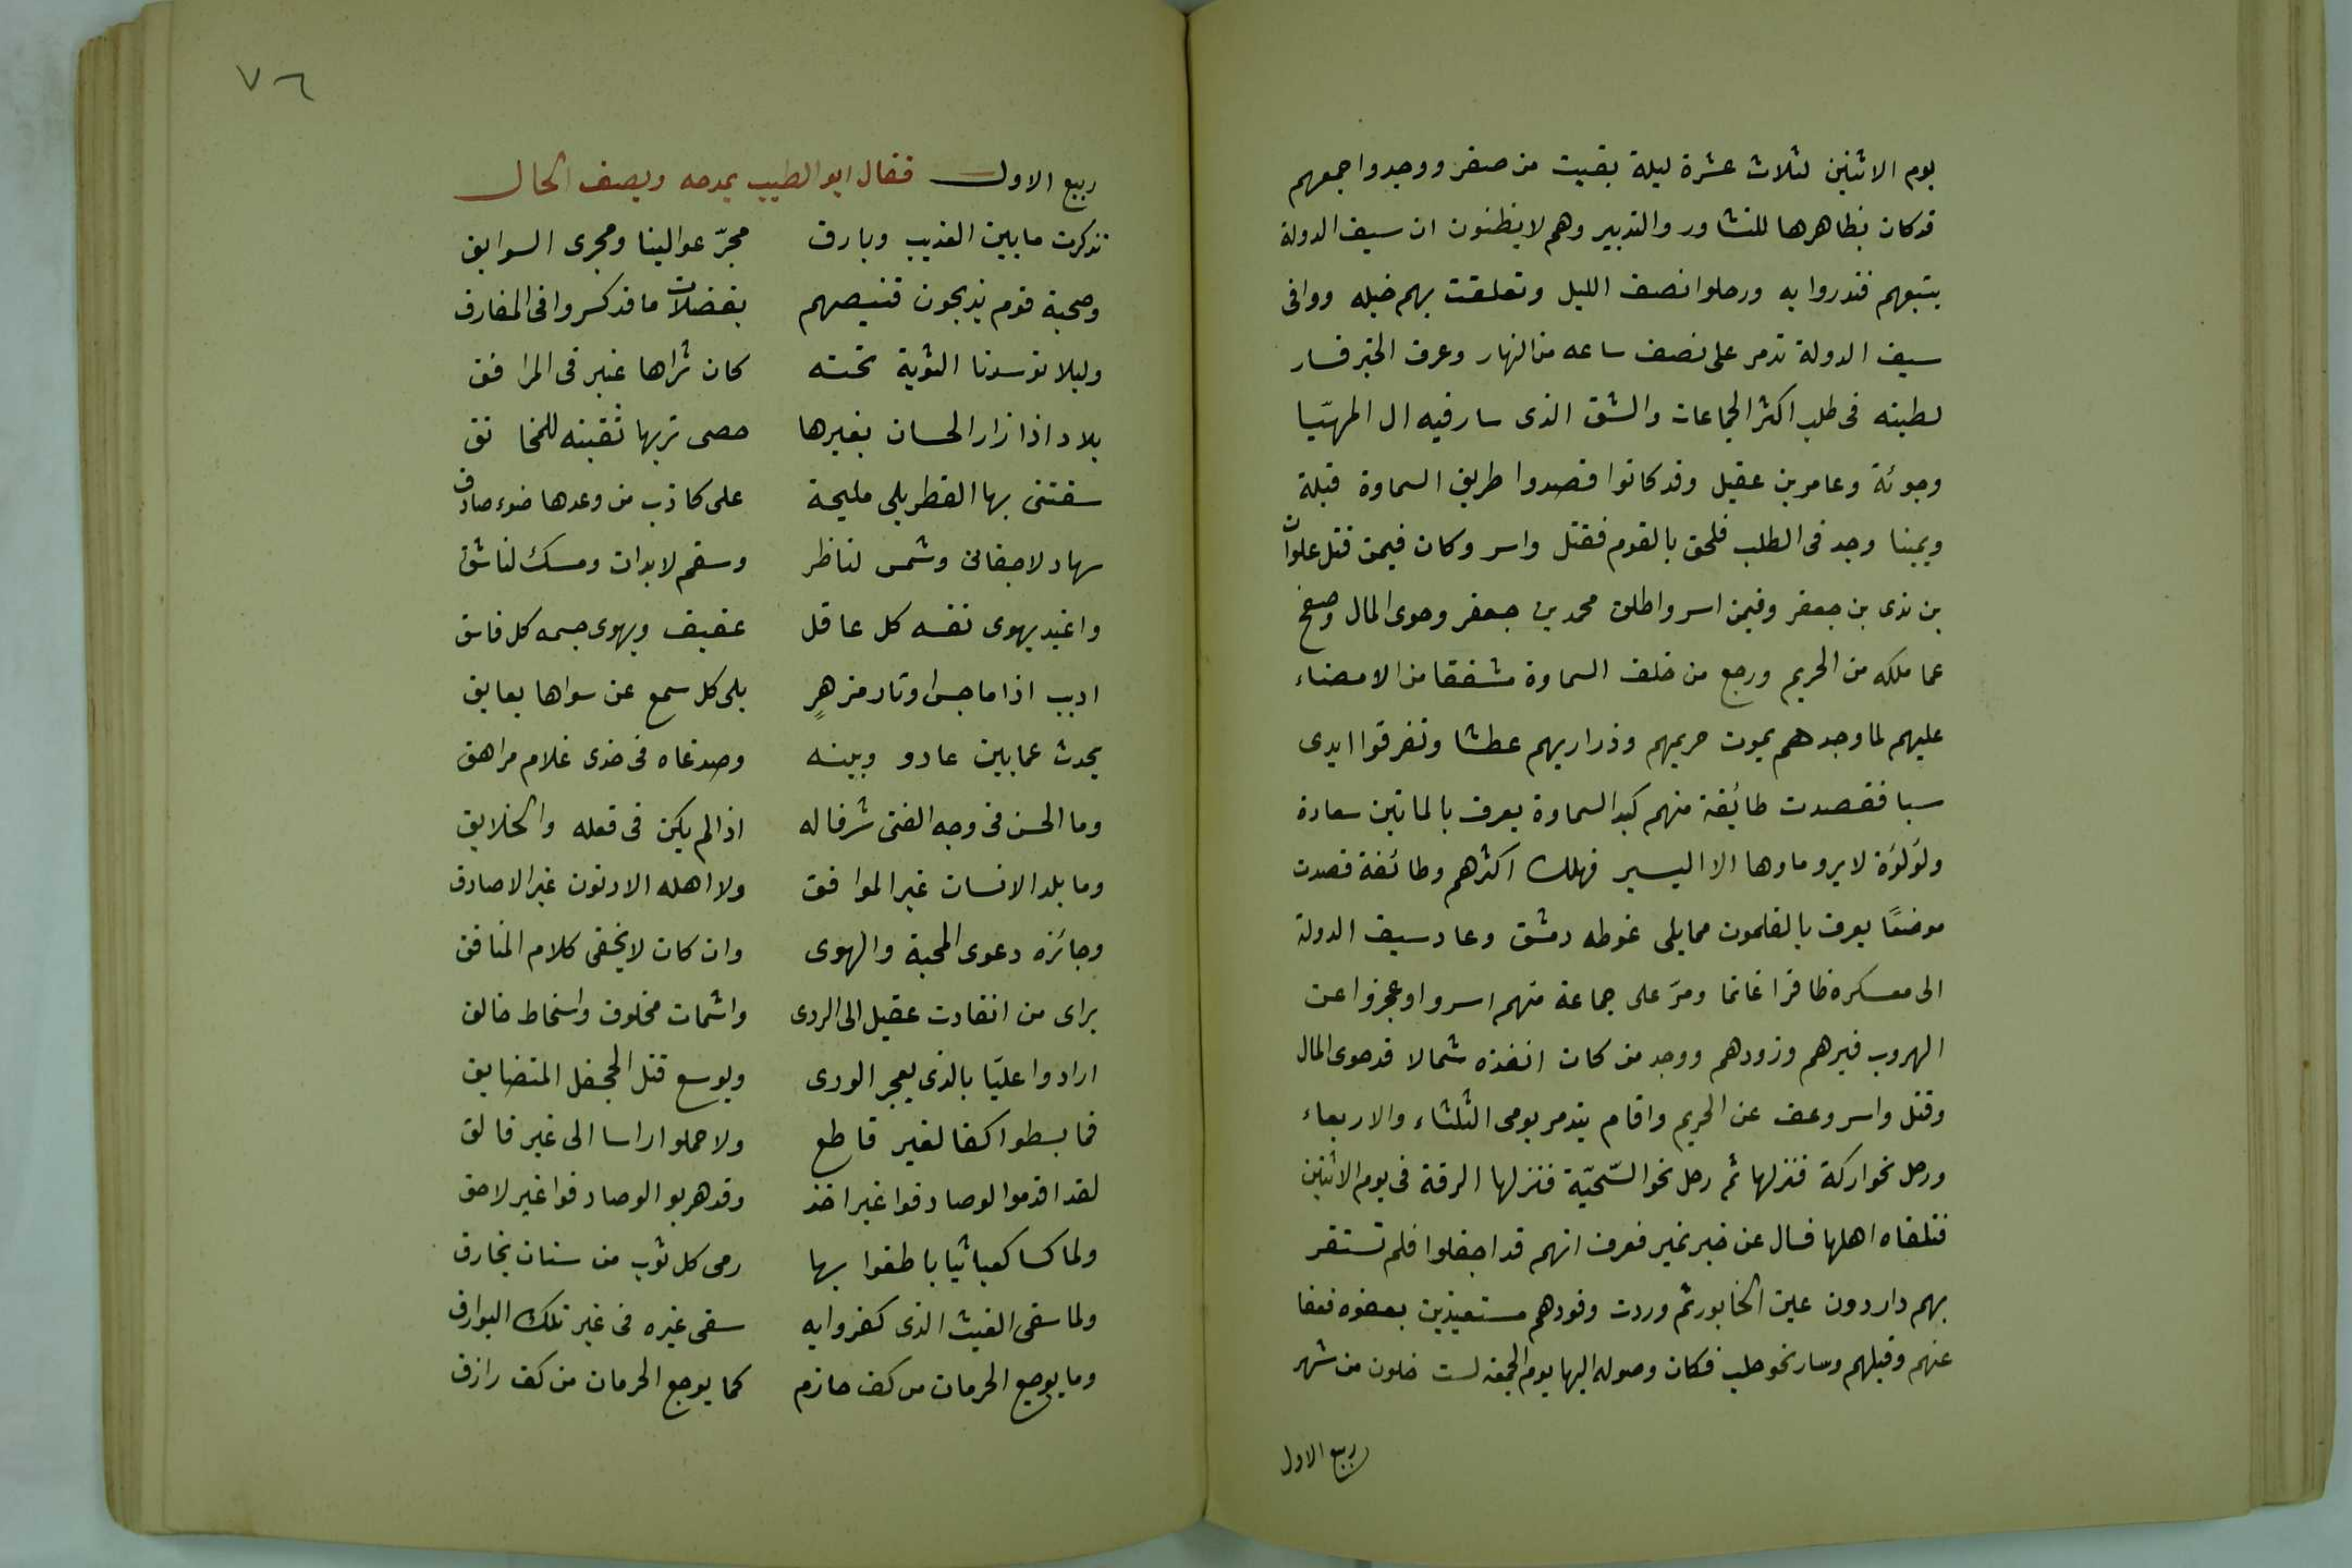 يوم الاثنين لثلاث عشرة ليلة بقيت من صفر ووجدوا جمعهم
قد كان بظاهرها للتشاور والتدبير وهم لا يظنون ان سيف الدولة
يتبعهم فنذروا به ورحلوا نصف الليل وتعلقت بهم خيله ووافى
سيف الدولة تدمر على نصف ساعه من النهار وعرف الخبر فسار
لطيته فى طلب اكثر الجماعات والشق الذى سار فيه ال المهيّا
وجوثة وعامر بن عقيل وقد كانوا قصدوا طريق السماوة قبلة
ويمينا وجد فى الطلب فلحق بالقوم فقتل واسر وكان فيمن قتل علوان
بن ندى بن جعفر وفيمن اسر واطلق محمد بن جعفر وحوى المال وصفح
عما ملكه من الحريم ورجع من خلف السماوة مشفقا من الامضاء
عليهم لما وجدهم يموت حريمهم وذراريهم عطشا وتفرقوا ايدى
سبا فقصدت طائفة منهم كبد السماوة يعرف بالماتين سعادة
ولؤلؤة لا يرو ماوها الا اليسير فهلك اكثرهم وطائفة قصدت
موضعًا يعرف بالقلمون مما يلى غوطه دمشق وعاد سيف الدولة
الى معسكره ظافرا غانما ومرّ على جماعة منهم اسروا وعجزوا عن
الهروب فبرهم وزودهم ووجد من كان انفذه شمالا قد حوى المال
وقتل واسر وعف عن الحريم واقام بتدمر يومى الثلثاء والاربعاء
ورحل نحو اركة فنزلها ثم رحل نحو السّخيّة فنزلها الرقة فى يوم الاثنين
فتلقاه اهلها فسال عن خبر نمير فعرف انهم قد اجفلوا فلم تستقر
بهم دار دون عين الخابور ثم وردت وفودهم مستعيذين بعفوه فعفا
عنهم وقبلهم وسار نحو حلب فكان وصوله اليها يوم الجمعه لست خلون من شهر
ربيع الاول
٧٦
ربيع الاول فقال ابو الطيب يمدحه ويصف الحال
تذكرت ما بين العذيب وبارق مجرّ عوالينا ومجرى السوابق
وصحبة قوم يذبحون قنيصهم بفضلات ما قد كسروا فى المفارق
وليلا توسدنا الثوية تحته كان ثراها عنبر فى المرافق
بلاد اذا زار الحسان بغيرها حصى تربها ثقبنه للمخانق
سقتنى بها القطربلى مليحة على كاذب من وعدها ضوء صادق
سهاد لاجفان وشمس لناظر وسقم لابدان ومسك لناشق
واغيد يهوى نفسه كل عاقل عفيف ويهوى جسمه كل فاسق
اديب اذا ما جس اوتار مزهرٍ بلى كل سمع عن سواها بعايق
يحدث عما بين عاد و وبينه وصدغاه فى خدى غلام مراهق
وما الحسن فى وجه الفتى شرفا له اذا لم يكن فى فعله والخلايق
وما بلد الانسان غير الموافق ولا اهله الادنون غير الاصادق
وجائزه دعوى المحبة والهوى وان كان لا يخفى كلام المنافق
براى من انقادت عقيل الى الردى واشمات مخلوق واسخاط خالق
ارادوا عليّا بالذى يعجز الورى ويوسع قتل الجحفل المتضايق
فما بسطوا كفا لغير قاطع ولا حملوا راسا الى غير فالق
لقد اقدموا لو صادفوا غير اخذ وقد هربوا لو صادفوا غير لاحق
ولما كسا كعبا ثيابا طغوا بها رمى كل ثوب من سنان بخارق
ولما سقى الغيث الذى كفروا به سقى غيره فى غير تلك البوارق
وما يوجع الحرمان من كف حازم كما يوجع الحرمان من كف رازق